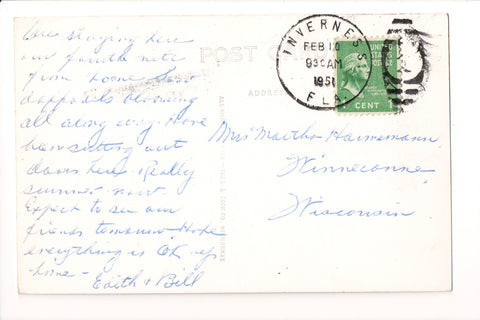 Are staying here
our fourth nite
from home. Saw
daffodils blooming
all along way. Have
been sitting out
doors here. Really
summer now.
Expect to see our
friends tomorrow. Hope
everything is OK up
home -
Edith & Bill
POST
ADDRESS
INVERNESS
FEB 10
930AM
1951
FLA.
UNITED
STATES
POSTAGE
1 CENT 1
Mrs Martha
Winneconne,
Wisconsin